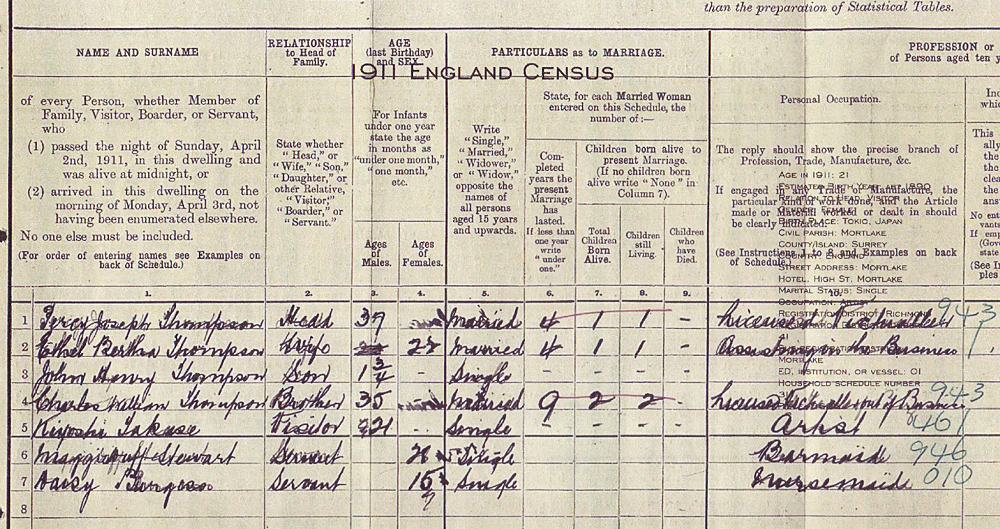 than the preparation of Statistical Tables.
NAME AND SURNAME
RELATIONSHIP
to Head of
Family.
AGE
(last Birthday)
and SEX.
PARTICULARS as to MARRIAGE.
PROFESSION or
of Persons aged ten y
1911 ENGLAND CENSUS
of every Person, whether Member of
Family, Visitor, Boarder, or Servant,
who
(1) passed the night of Sunday, April
2nd, 1911, in this dwelling and
was alive at midnight, or
(2) arrived in this dwelling on the
morning of Monday, April 3rd, not
having been enumerated elsewhere.
No one else must be included.
(For order of entering names see Examples on
back of Schedule.)
State whether
"Head," or
"Wife," "Son,"
"Daughter," or
other Relative,
"Visitor,"
"Boarder," or
"Servant."
For Infants
under one year
state the age
in months as
"under one month,"
"one month,"
etc.
Ages
of
Males.
Ages
of
Females.
Write
"Single,"
"Married,"
"Widower,"
or "Widow,"
opposite the
names of
all persons
aged 15 years
and upwards.
State, for each Married Woman
entered on this Schedule, the
number of:—
Com-
pleted
years the
present
Marriage
has
lasted.
If less than
one year
write
"under
one."
Children born alive to
present Marriage.
(If no children born
alive write "None" in
Column 7).
Total
Children
Born
Alive.
Children
still
Living.
Children
who
have
Died.
Personal Occupation.
The reply should show the precise branch of
Profession, Trade, Manufacture, &c.
If engaged in any Trade or Manufacture, the
particular kind of work done, and the Article
made or
dealt in should
be clearly indicated.
(See Instructions 1 to
and Examples on back
of Schedule.)
AGE IN 1911: 21
RELATION TO HEAD: VISITOR
GENDER: FEMALE
BIRTH PLACE: TOKIO, JAPAN
CIVIL PARISH: MORTLAKE
COUNTY/ISLAND: SURREY
COUNTRY: ENGLAND
STREET ADDRESS: MORTLAKE
HOTEL, HIGH ST, MORTLAKE
MARITAL STATUS: SINGLE
OCCUPATION: ARTIST
REGISTRATION DISTRICT: RICHMOND
MORTLAKE
ED, INSTITUTION, OR VESSEL: 01
HOUSEHOLD SCHEDULE NUMBER
This
1. 2. 3. 4. 5. 6. 7. 8. 9. 10.
1 Percy Joseph Thompson Head 37 Married 4 1 1 - Licensed Victualler 943
2 Ethel Bertha Thompson Wife Married 4 1 1 - Assisting in the Business
3 John Henry Thompson Son 1 3/4 - Single
4 Charles William Thompson Brother 35 Married 9 2 2 - Licensed Victualler out of Business 943
5 Kiyoshi Takase Visitor 21 - Single - - - - Artist
6 Stewart Servant Single Barmaid 946
7 Daisy Burgess Servant 15 Single Nursemaid 010
8